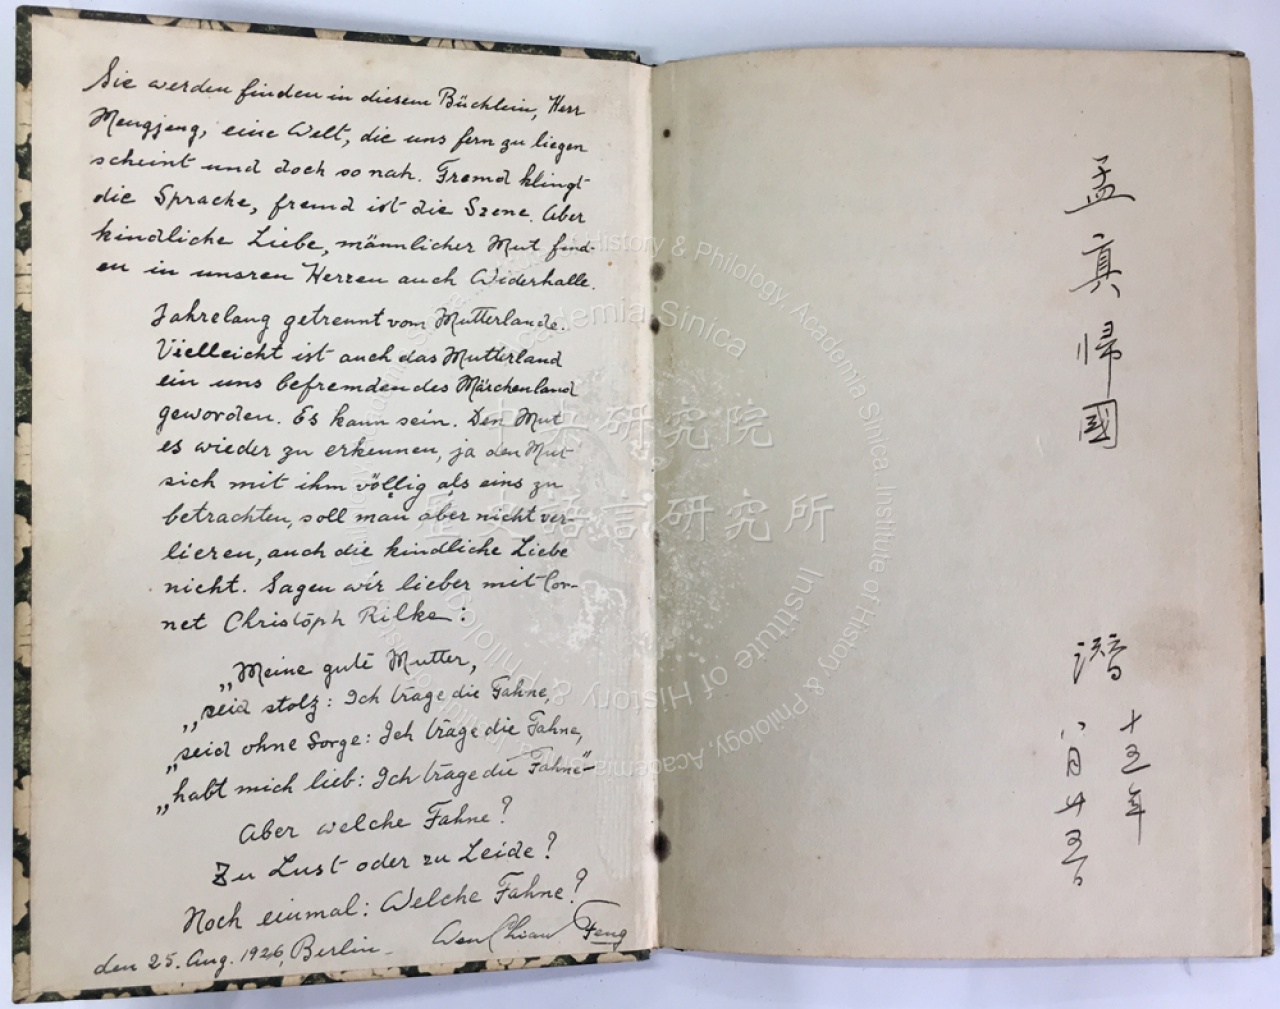 Sie werden finden in diesem Büchlein, Herr
Mengjeng, eine Welt, die uns fern zu liegen
scheint und doch so nah. Fremd klingt
die Sprache, fremd ist die Szene. Aber
kindliche Liebe, männlicher Mut find-
en in unsren Herzen auch Widerhalle.
Jahrelang getrennt vom Mutterlande.
Vielleicht ist auch das Mutterland
ein uns befremdendes Märchenland
geworden. Es kann sein. Den Mut
es wieder zu erkennen, ja den Mut
sich mit ihm völlig als eins zu
betrachten, soll man aber nicht ver-
lieren, auch die kindliche Liebe
nicht. Sagen wir lieber mit Cor-
net Christoph Rilke:
„Meine gute Mutter,
„seid stolz: Ich trage die Fahne,
„seid ohne Sorge: Ich trage die Fahne,
„habt mich lieb: Ich trage die Fahne“-
Aber welche Fahne?
Zu Lust oder zu Leide?
Noch einmal: Welche Fahne?
den 25. Aug. 1926, Berlin-
Feng
孟真帰國
十五年
八月廿五日
中央研究院
歷史語言研究所
Institute of History & Philology, Academia Sinica